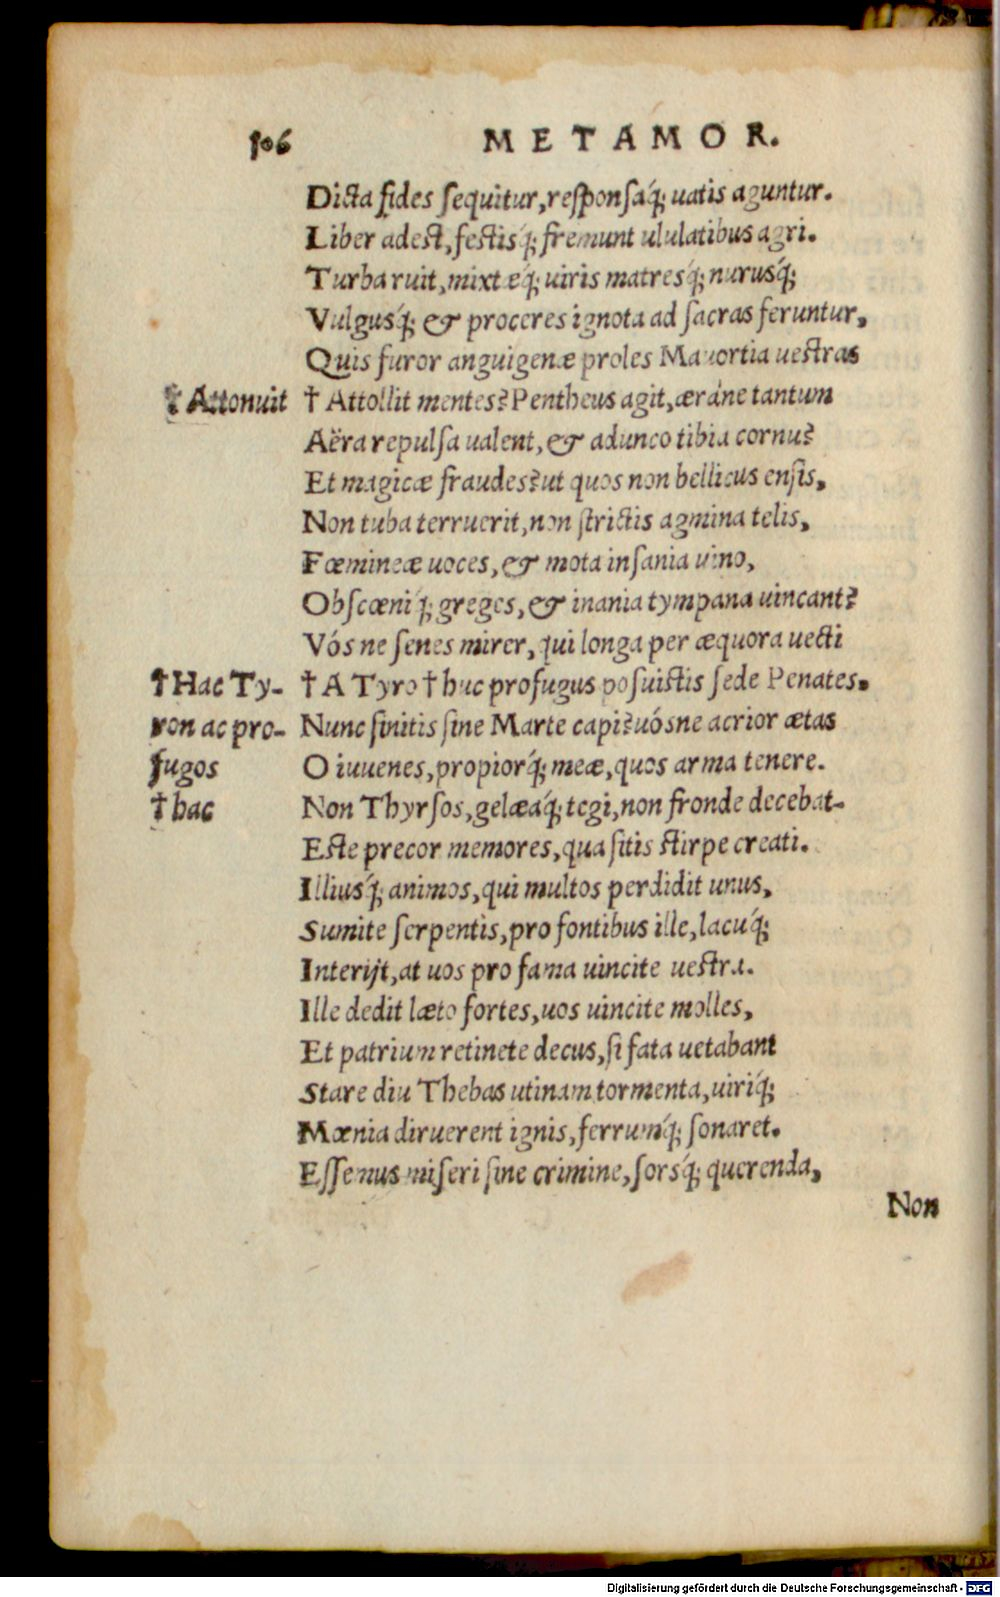 106 METAMOR.
Dicta fides sequitur, responsaq́; uatis aguntur.
Liber adest, festisq́; fremunt ululatibus agri.
Turba ruit, mixtæq́; uiris matresq́; nurusq́;
Vulgusq́; & proceres ignota ad sacras feruntur,
Quis furor anguigenæ proles Mauortia uestras
† Attonuit
† Attollit mentes? Pentheus agit, æráne tantum
Aëra repulsa ualent, & adunco tibia cornu?
Et magicæ fraudes? ut quos non bellicus ensis,
Non tuba terruerit, non strictis agmina telis,
Fœmineæ uoces, & mota insania uino,
Obscœniq́; greges, & inania tympana uincant?
Vós ne senes mirer, qui longa per æquora uecti
† Hac Ty-
ron ac pro-
fugos
† hac
† A Tyro † huc profugus posuistis sede Penates.
Nunc sinitis sine Marte capi? uósne acrior ætas
O iuuenes, propiorq́; meæ, quos arma tenere.
Non Thyrsos, gelæaq́; tegi, non fronde decebat-
Este precor memores, qua sitis stirpe creati.
Illiusq́; animos, qui multos perdidit unus,
Sumite serpentis, pro fontibus ille, lacuq́;
Interijt, at uos pro fama uincite uestra.
Ille dedit læto fortes, uos uincite molles,
Et patrium retinete decus, si fata uetabant
Stare diu Thebas utinam tormenta, uiriq́;
Mœnia diruerent ignis, ferrumq́; sonaret.
Essemus miseri sine crimine, sorsq́; querenda,
Non
Digitalisierung gefördert durch die Deutsche Forschungsgemeinschaft - DFG